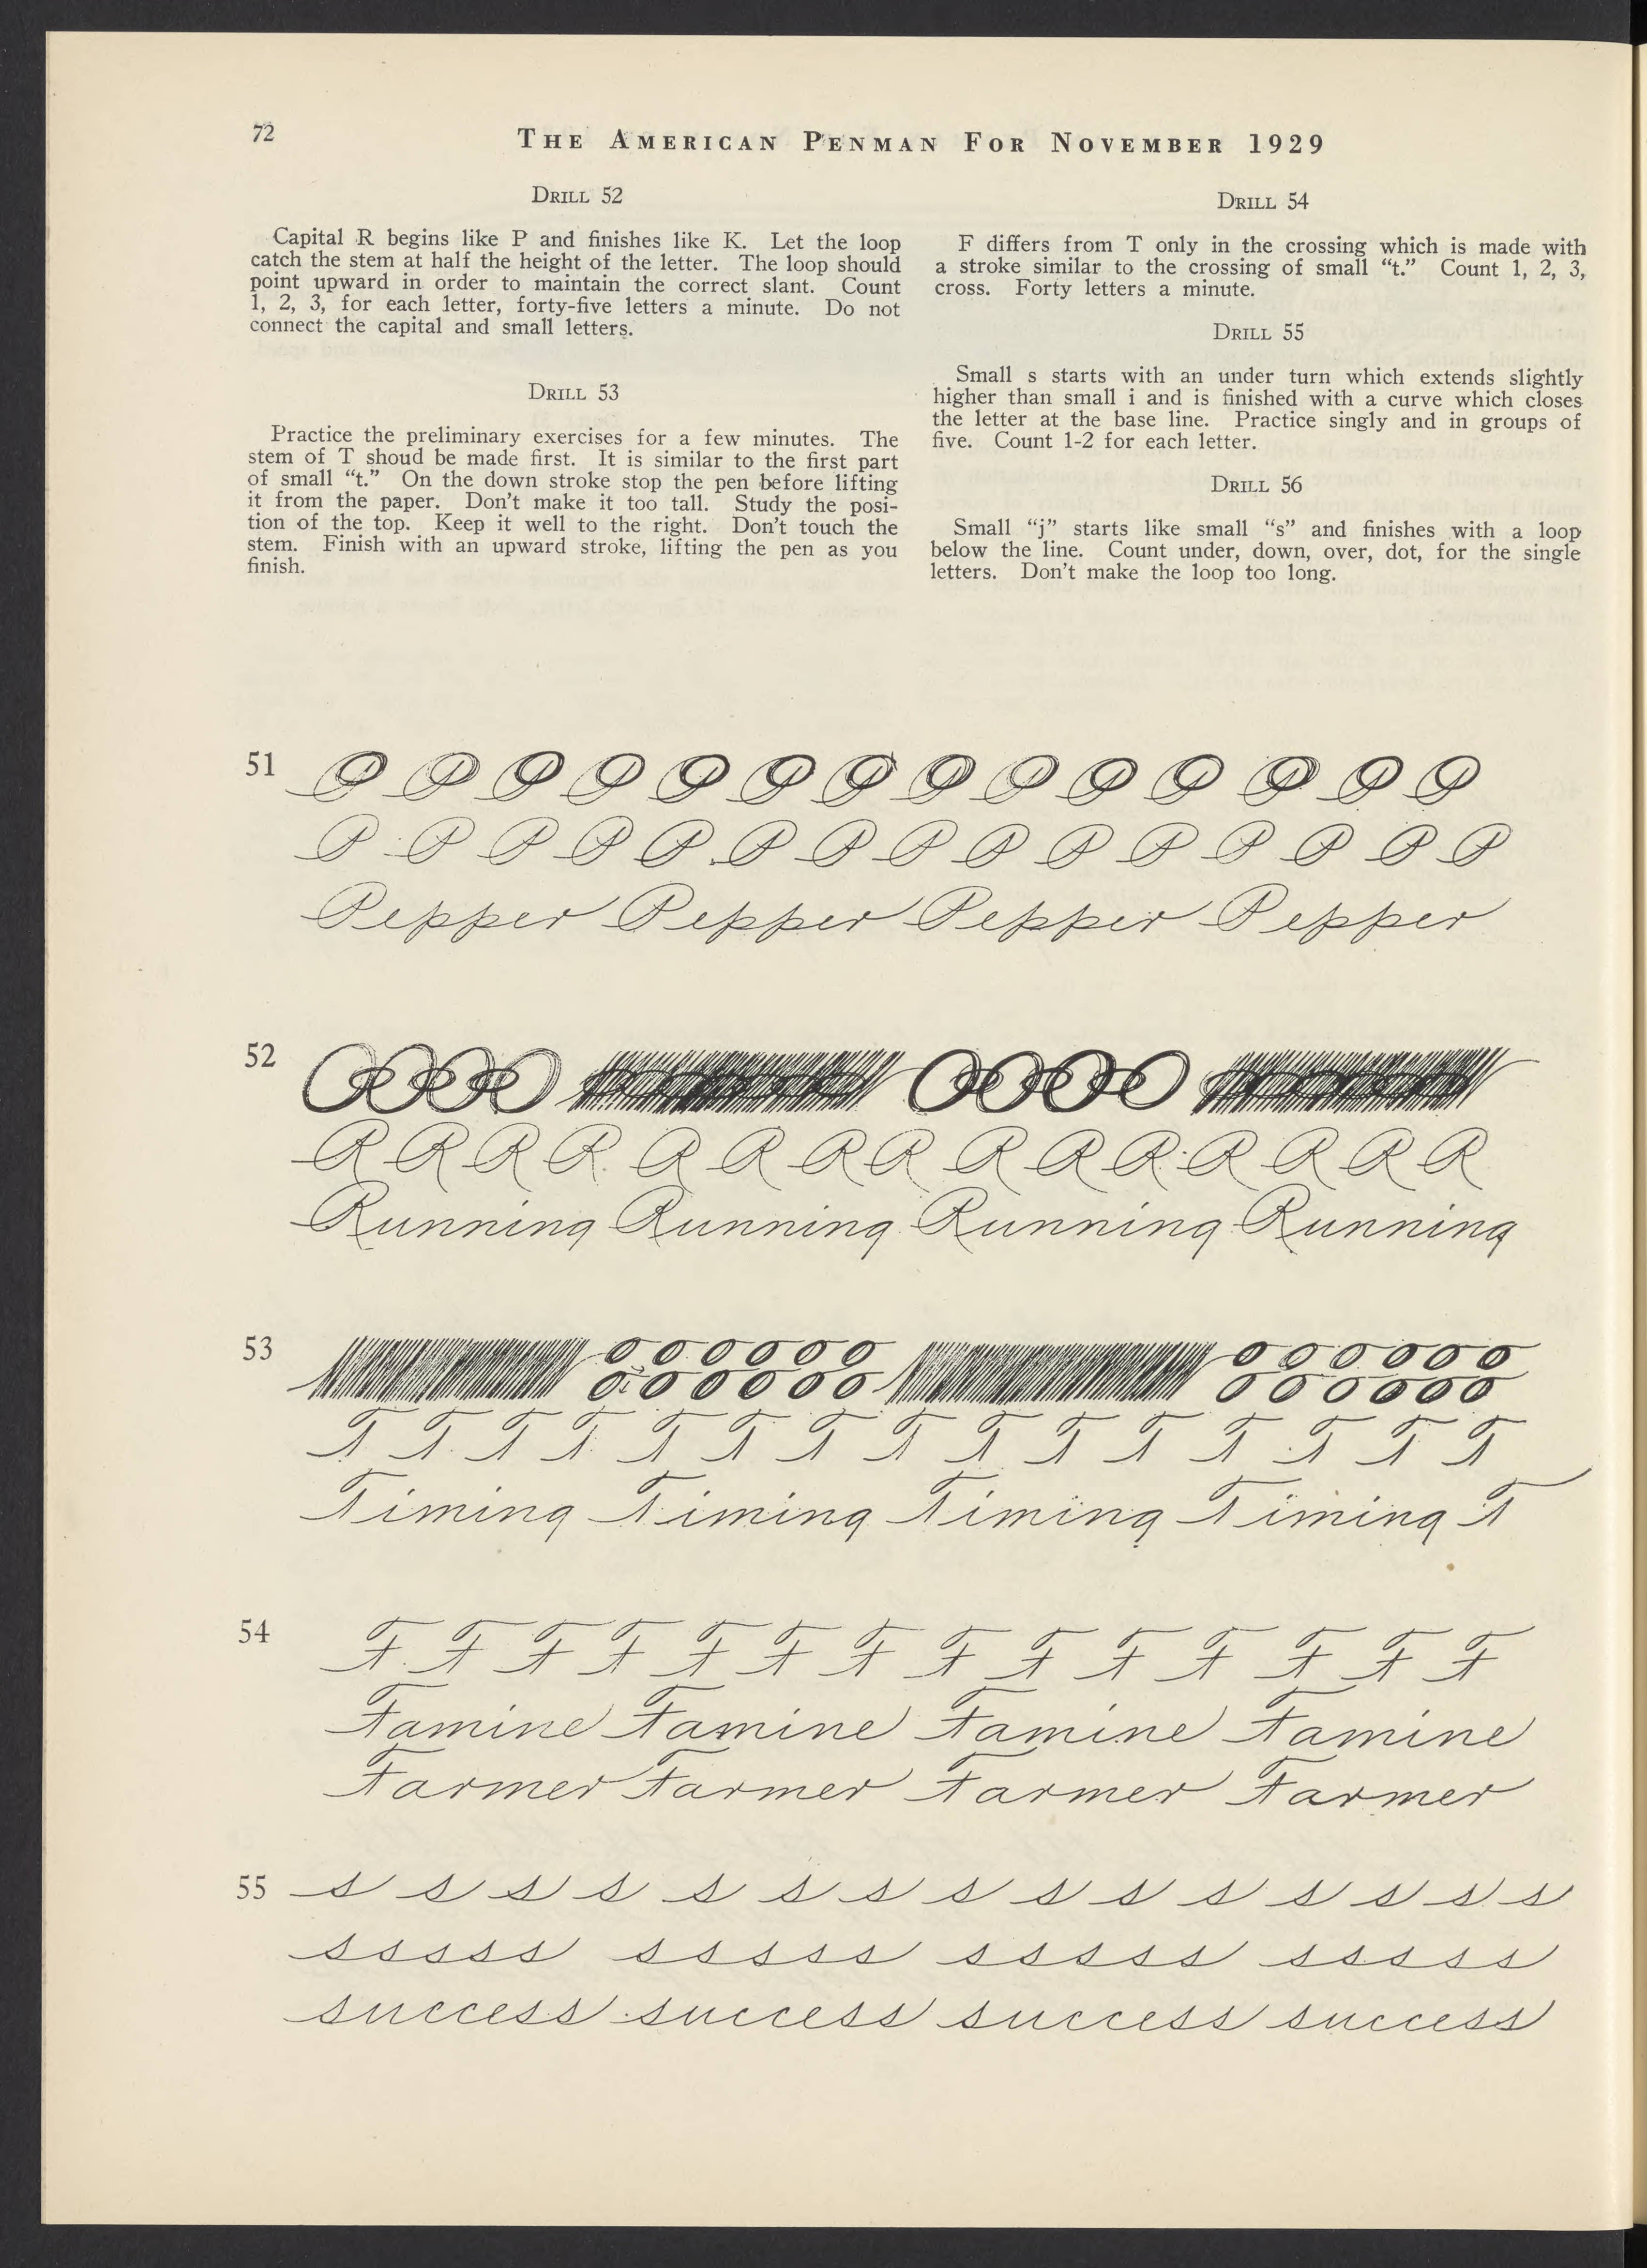 72
THE AMERICAN PENMAN FOR NOVEMBER 1929
DRILL 52
Capital R begins like P and finishes like K. Let the loop
catch the stem at half the height of the letter. The loop should
point upward in order to maintain the correct slant. Count
1, 2, 3, for each letter, forty-five letters a minute. Do not
connect the capital and small letters.
DRILL 53
Practice the preliminary exercises for a few minutes. The
stem of T shoud be made first. It is similar to the first part
of small “t.” On the down stroke stop the pen before lifting
it from the paper. Don't make it too tall. Study the posi-
tion of the top. Keep it well to the right. Don't touch the
stem. Finish with an upward stroke, lifting the pen as you
finish.
DRILL 54
F differs from T only in the crossing which is made with
a stroke similar to the crossing of small “t.” Count 1, 2, 3,
cross. Forty letters a minute.
DRILL 55
Small s starts with an under turn which extends slightly
higher than small i and is finished with a curve which closes
the letter at the base line. Practice singly and in groups of
five. Count 1-2 for each letter.
DRILL 56
Small “j” starts like small “s” and finishes with a loop
below the line. Count under, down, over, dot, for the single
letters. Don't make the loop too long.
51
P P P P P P P P P P P P P P P
Pepper Pepper Pepper Pepper
52
R R R R R R R R R R R R R R R
Running Running Running Running
53
T T T T T T T T T T T T T T T
Timing Timing Timing Timing T
54
F F F F F F F F F F F F F F
Famine Famine Famine Famine
Farmer Farmer Farmer Farmer
55 s s s s s s s s s s s s s s s
sssss sssss sssss sssss
success success success success